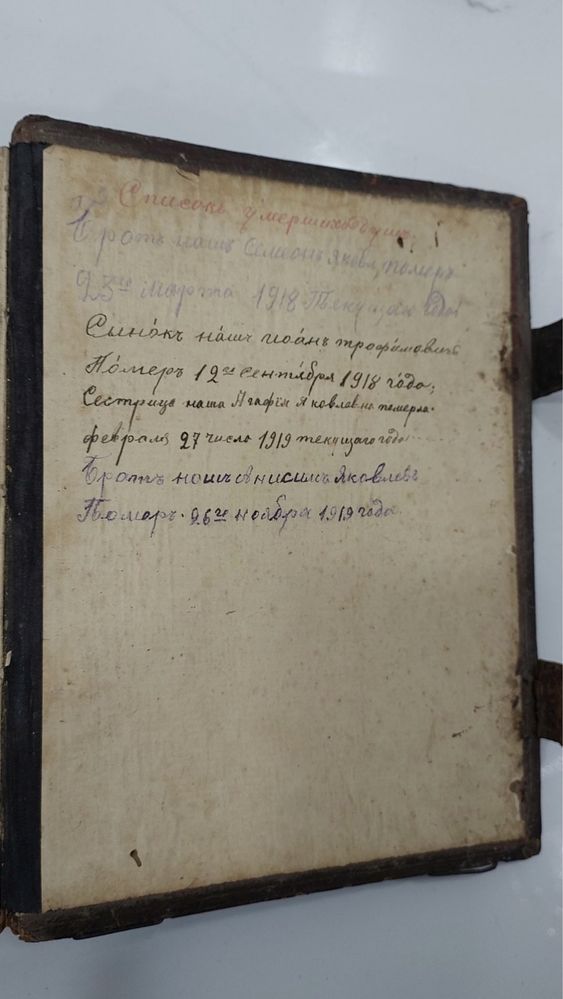 Списокъ умершихъ душъ.
Братъ нашъ Семеонъ Яковл. померъ
23го марта 1918 Текущаго года
Сынокъ нашъ иоанъ трофимовичъ
Померъ 12го сентября 1918 года;
Сестрица наша Агафия Яковлевна померла
февраля 27 числа 1919 текущаго года
Братъ нашъ Анисимъ Яковлевъ
Помаръ 26го ноября 1919 года